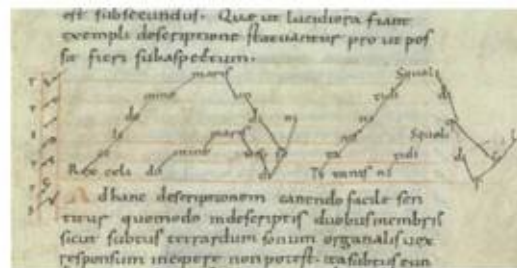 est subsecundus. Que ut lucidiora fiant
exempli descriptione statuantur pro ut pos
sit fieri subaspectum.
maris
mine
do
li
ce
Rex celi do mine maris
un
di
so
ni
Squali
tidi
ni
nis
ta
Ty tanis ni tidi
Squali
di
A d hanc descriptionem canendo facile sen
titur quomodo indescriptis duobus membris
sicut subtus tetrardum sonum organalis uox
responsum incipere non potest. ita subtus eun